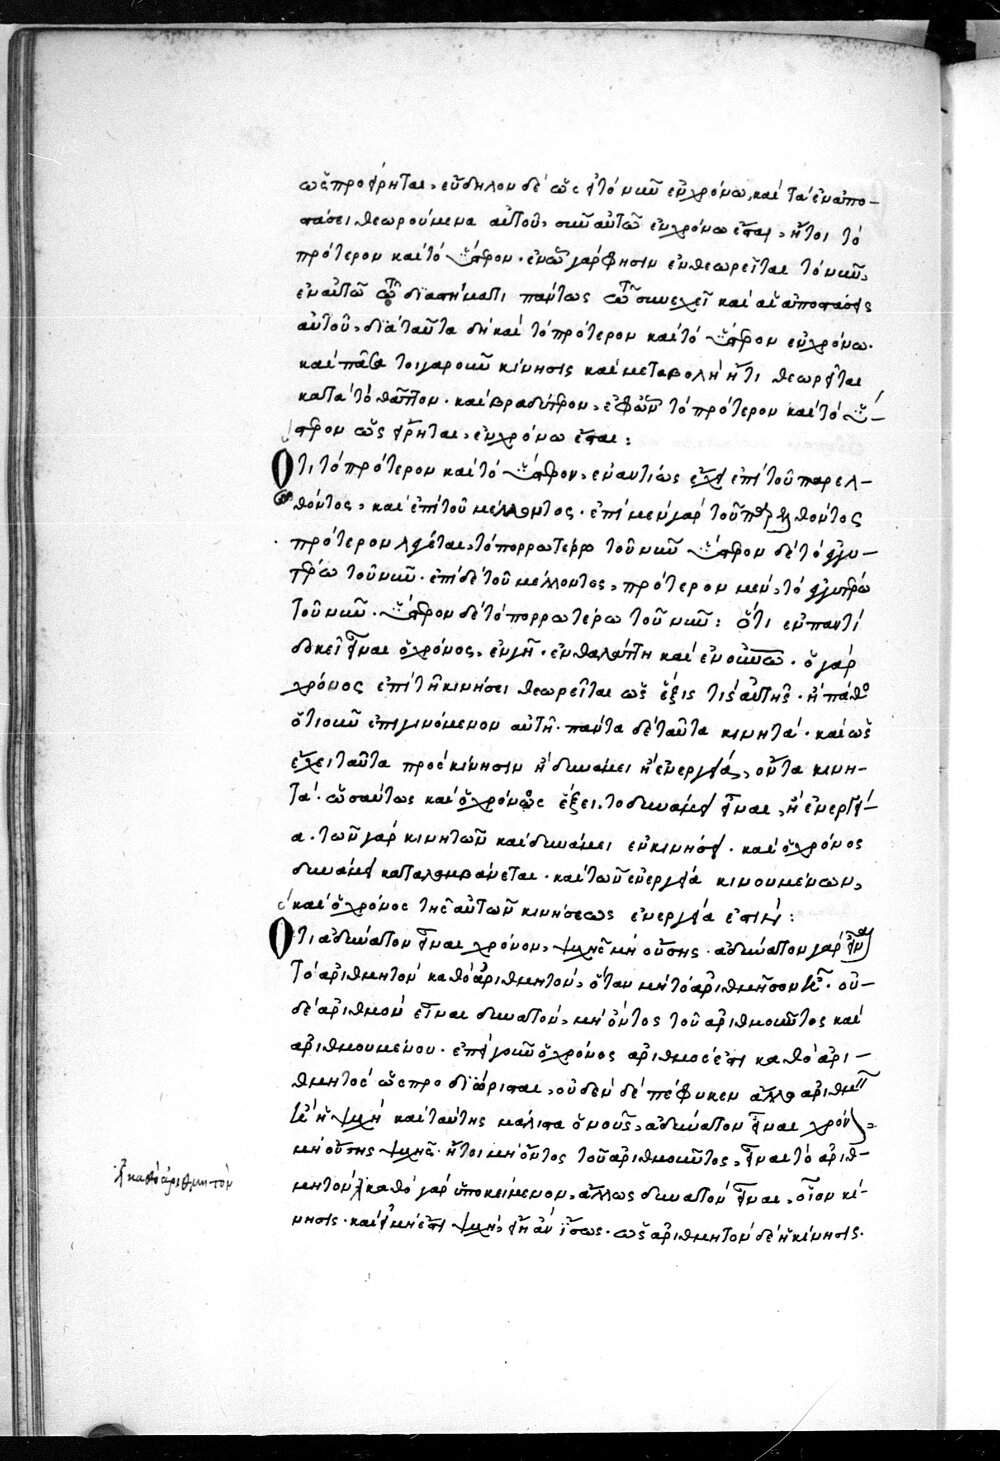 ὡς προείρηται, εὔδηλον δὲ ὡς εἰ τὸ νῦν ἐν χρόνω, καὶ τὰ ἐν ἀπο-
στάσει θεωρούμενα αὐτοῦ, σὺν αὐτῶ ἐν χρόνω ἔσται, ἤτοι τὸ
πρότερον καὶ τὸ ὕστερον. ἐν ὧ γάρ φησιν ἐνθεωρεῖται τὸ νῦν,
ἐν αὐτῶ τῶ διαστήματι πάντως τῶ συνεχεῖ καὶ αἱ ἀποστάσεις
αὐτοῦ, διὰ ταῦτα δὴ καὶ τὸ πρότερον καὶ τὸ ὕστερον ἐν χρόνω.
καὶ πᾶσα τοιγαροῦν κίνησις καὶ μεταβολὴ ἥτις θεωρεῖται
κατὰ τὸ θᾶττον καὶ βραδύτερον, ἐφ' ὧν τὸ πρότερον καὶ τὸ ὕ-
στερον ὡς εἴρηται, ἐν χρόνω ἔσται:
Ὅτι τὸ πρότερον καὶ τὸ ὕστερον, ἐναντίως ἔχει ἐπὶ τοῦ παρελ-
θόντος, καὶ ἐπὶ τοῦ μέλλοντος. ἐπὶ μὲν γὰρ τοῦ παρελθόντος
πρότερον λέγεται, τὸ πορρωτέρω τοῦ νῦν ὕστερον δὲ τὸ ἐγγυ-
τέρω τοῦ νῦν. ἐπὶ δὲ τοῦ μέλλοντος, πρότερον μὲν, τὸ ἐγγυτέρω
τοῦ νῦν. ὕστερον δὲ τὸ πορρωτέρω τοῦ νῦν: ὅτι ἐν παντὶ
δοκεῖ εἶναι ὁ χρόνος, ἐν γῆ. ἐν θαλάττη καὶ ἐν οὐρανῶ. ὁ γὰρ
χρόνος ἐπὶ τῆ κινήσει θεωρεῖται ὡς ἕξις τις αὐτῆς. ἢ πάθος
ὁτιοῦν ἐπιγινόμενον αὐτῆ. πάντα δὲ ταῦτα κινητά. καὶ ὡς
ἔχει ταῦτα πρὸς κίνησιν ἢ δυνάμει ἢ ἐνεργεία, ὄντα κινη-
τά. ὡσαύτως καὶ ὁ χρόνος ἕξει, τὸ δυνάμει εἶναι, ἢ ἐνεργεί-
α. τῶν γὰρ κινητῶν καὶ δυνάμει ἐν κινήσει. καὶ ὁ χρόνος
δυνάμει καταλαμβάνεται. καὶ τῶν ἐνεργεία κινουμένων,
καὶ ὁ χρόνος τῆς αὐτῶν κινήσεως ἐνεργεία ἐστὶν:
Ὅτι ἀδύνατον εἶναι χρόνον, ψυχῆς μὴ οὔσης. ἀδύνατον γὰρ εἶναι
τὸ ἀριθμητὸν καθὸ ἀριθμητὸν, ὅταν μὴ τὸ ἀριθμῆσον ἦ. οὐ-
δὲ ἀριθμὸν εἶναι δυνατὸν, μὴ ὄντος τοῦ ἀριθμοῦντος καὶ
ἀριθμουμένου. ἐπεὶ γοῦν ὁ χρόνος ἀριθμός ἐστι καθὸ ἀρι-
θμητὸς ὡς προδιώρισται, οὐδὲν δὲ πέφυκεν ἄλλο ἀριθμεῖν
ἢ ἡ ψυχὴ καὶ ταύτης μάλιστα ὁ νοῦς, ἀδύνατον εἶναι χρόνον,
μὴ οὔσης ψυχῆς. ἤτοι μὴ ὄντος τοῦ ἀριθμοῦντος, εἶναι τὸ ἀριθ-
μητὸν καθὸ γὰρ ὑποκείμενον, ἄλλως δυνατὸν εἶναι, οἷον κί-
νησις. καὶ εἰ μή ἐστι ψυχὴ, εἴη ἂν ἴσως. ὡς ἀριθμητὸν δὲ ἡ κίνησις.
καθὸ ἀριθμητὸν